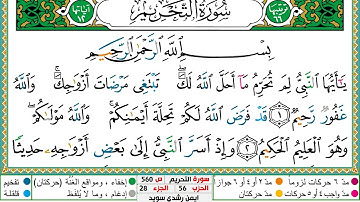 ترتيبها ٦٦ سُورَةُ التَّحْرِيمِ آياتها ١٢
بِسْمِ اللَّهِ الرَّحْمَٰنِ الرَّحِيمِ
يَٰٓأَيُّهَا النَّبِيُّ لِمَ تُحَرِّمُ مَآ أَحَلَّ اللَّهُ لَكَ تَبْتَغِى مَرْضَاتَ أَزْوَٰجِكَ وَاللَّهُ
غَفُورٌ رَّحِيمٌ ١ قَدْ فَرَضَ اللَّهُ لَكُمْ تَحِلَّةَ أَيْمَٰنِكُمْ وَاللَّهُ مَوْلَىٰكُمْ
وَهُوَ الْعَلِيمُ الْحَكِيمُ ٢ وَإِذْ أَسَرَّ النَّبِيُّ إِلَىٰ بَعْضِ أَزْوَٰجِهِ حَدِيثًا
مدّ ٦ حركات لزوماً مدّ ٢ أو ٤ أو ٦ جوازاً سورة التحريم ص 560 إخفاء، ومواقع الغُنَّة (حركتان) تفخيم
مدّ واجب ٤ أو ٥ حركات مدّ حركتان الحزب 56 الجزء 28 إدغام، وما لا يُلفَظ قلقلة
أيمن رشدي سويد